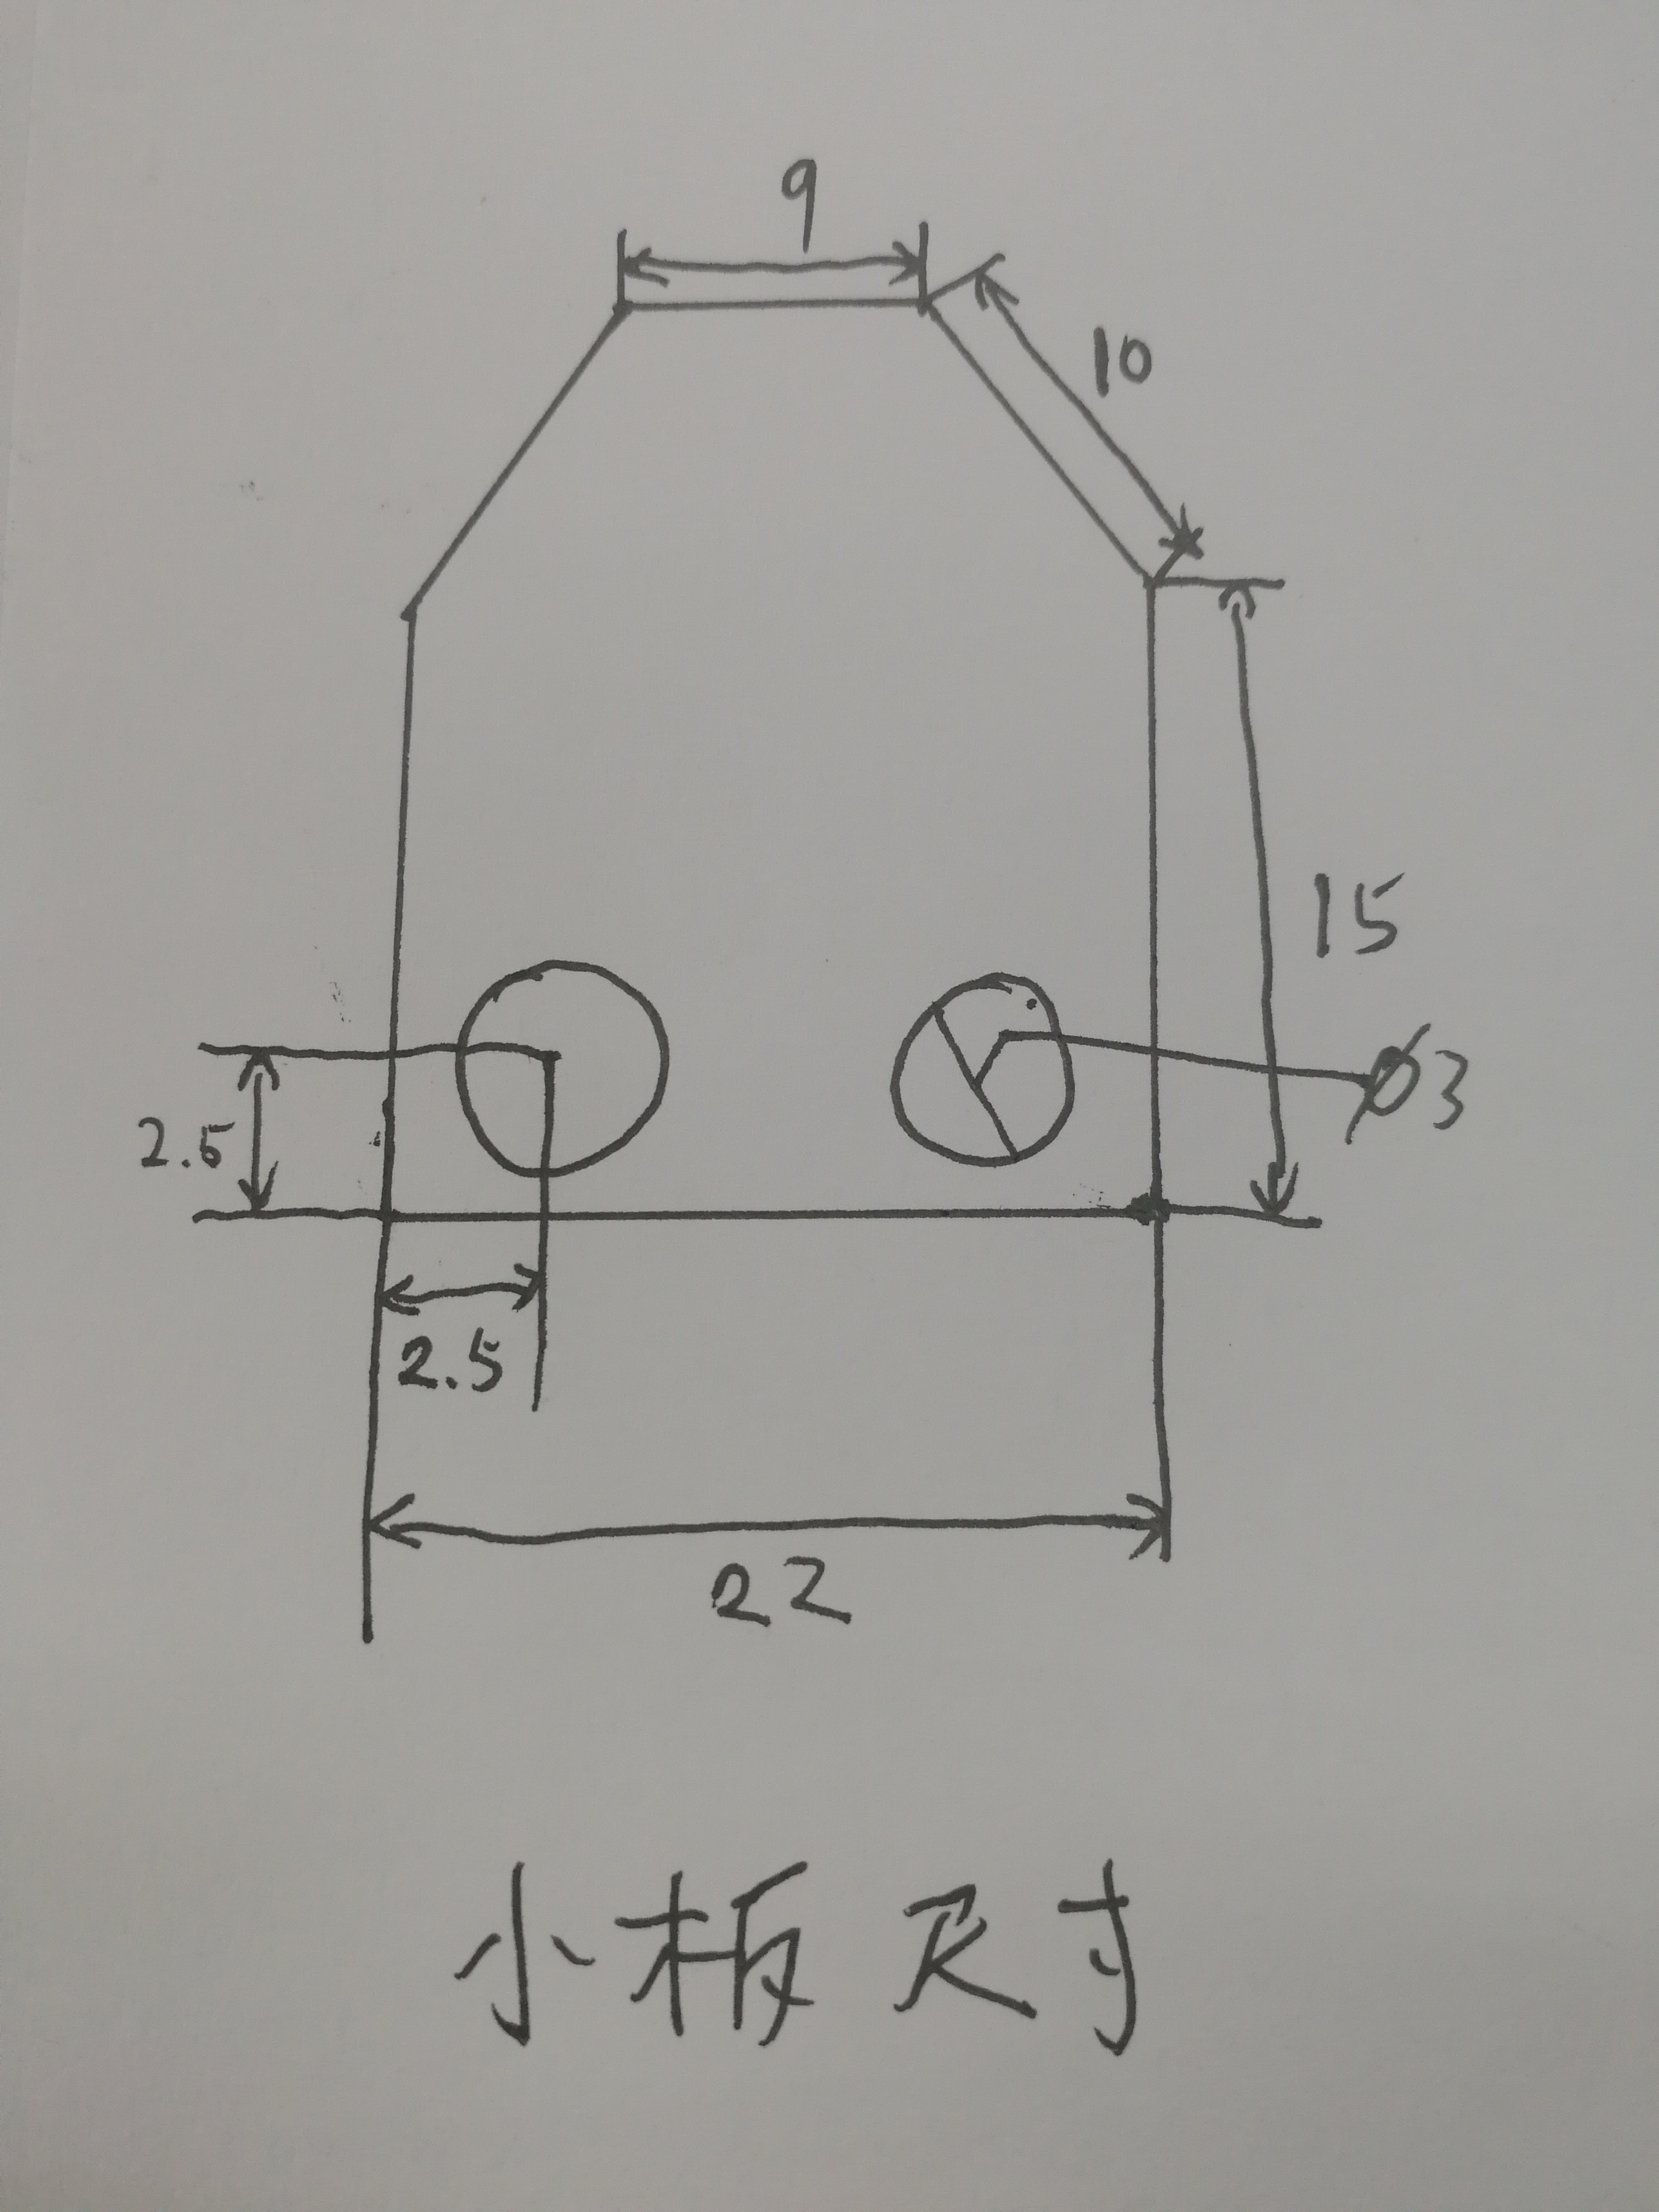 9
10
15
ø3
2.5
2.5
22
小板尺寸